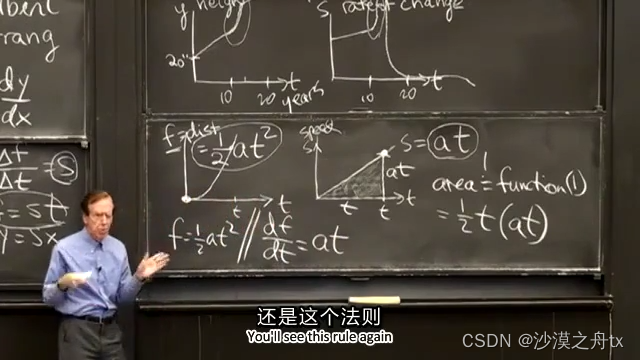 rang
dy
dx
Δf
Δt
S
= st
y = sx
y height
20"
10 20 years
t
S rate of change
10 20
t
f = dist
= ½at²
t
t
speed
S
S = at
at
t t
t
area = function(1)
= ½t(at)
f = ½at² // df/dt = at
还是这个法则
You'll see this rule again
CSDN @沙漠之舟tx